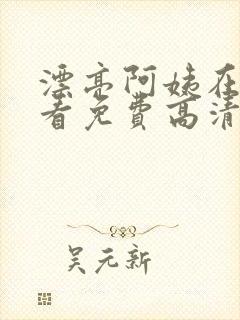 漂亮阿姨在
看免费高清
吴元新